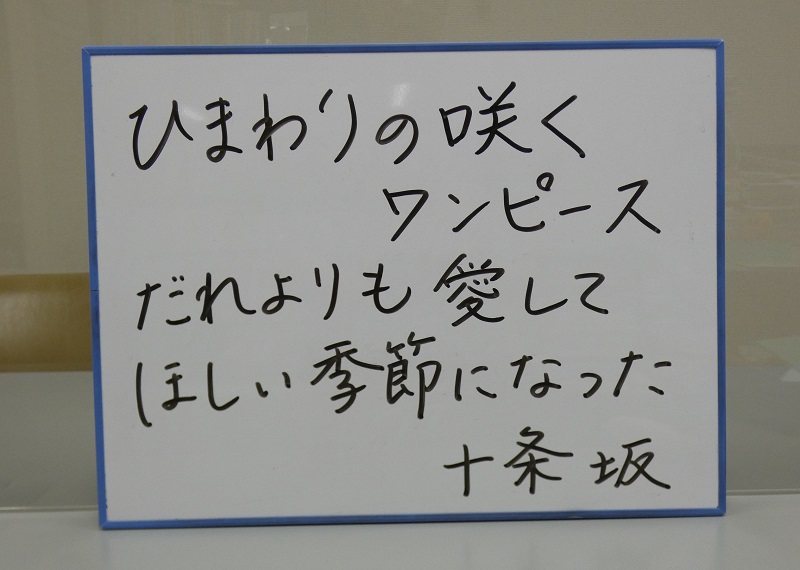 ひまわりの咲く
ワンピース
だれよりも愛して
ほしい季節になった
十条坂